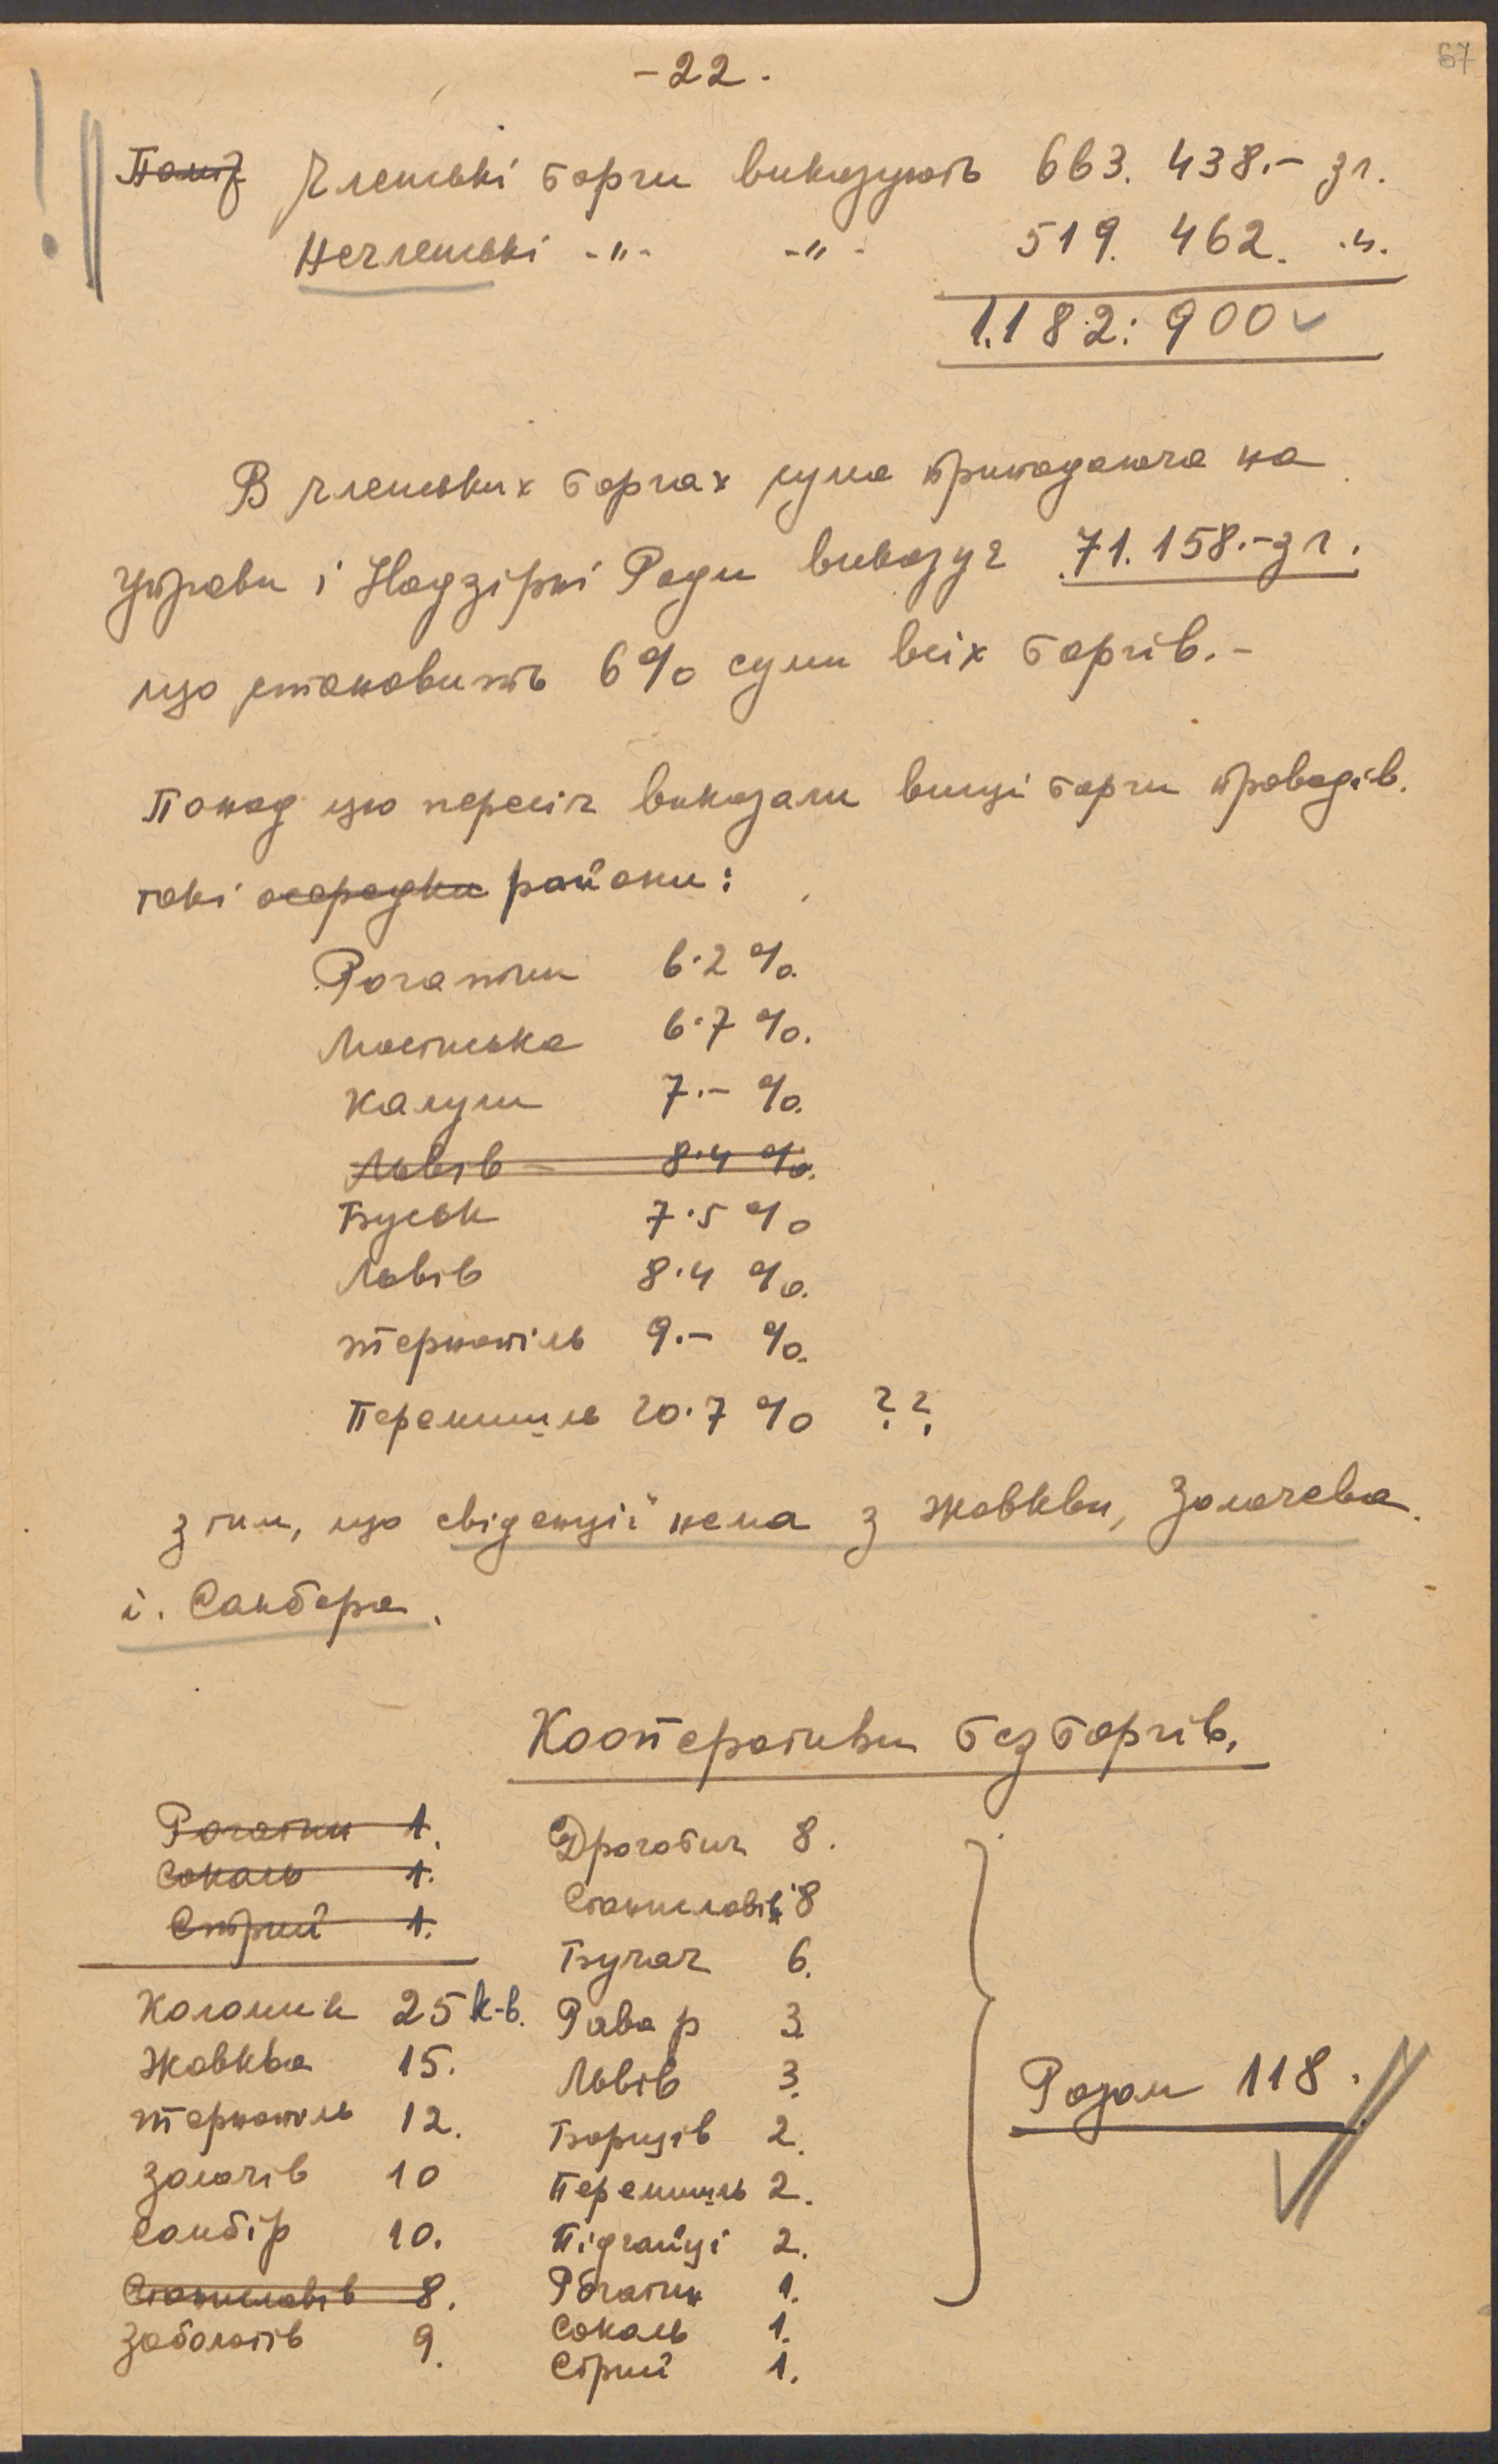 -22.
67
Членські борги виказують 663.438.- зл.
Нечленські -"- -"- 519.462. -"-
1.182.900
В членських боргах сума припадаюча на
управи і Надзірні Ради виказує 71.158.- зл.
що становить 6% суми всіх боргів.-
Понад цю пересіч виказали вищі борги проводів.
такі осередки райони:
Рогатин 6.2%.
Мостиська 6.7%.
Калуш 7.-%.
Львів 8.4%.
Буськ 7.5%
Львів 8.4%.
Тернопіль 9.-%.
Перемишль 20.7% ??
з тим, що евіденції нема з Жовкви, Золочева
і. Самбора.
Кооперативи без боргів.
Рогатин 1.
Сокаль 1.
Стрий 1.
Коломия 25 к-в.
Жовква 15.
Тернопіль 12.
Золочів 10
Самбір 10.
Станиславів 8.
Заболотів 9.
Дрогобич 8.
Станиславів 8
Бучач 6.
Рава р 3
Львів 3.
Борщів 2.
Перемишль 2.
Підгайці 2.
Рогатин 1.
Сокаль 1.
Стрий 1.
Разом 118.